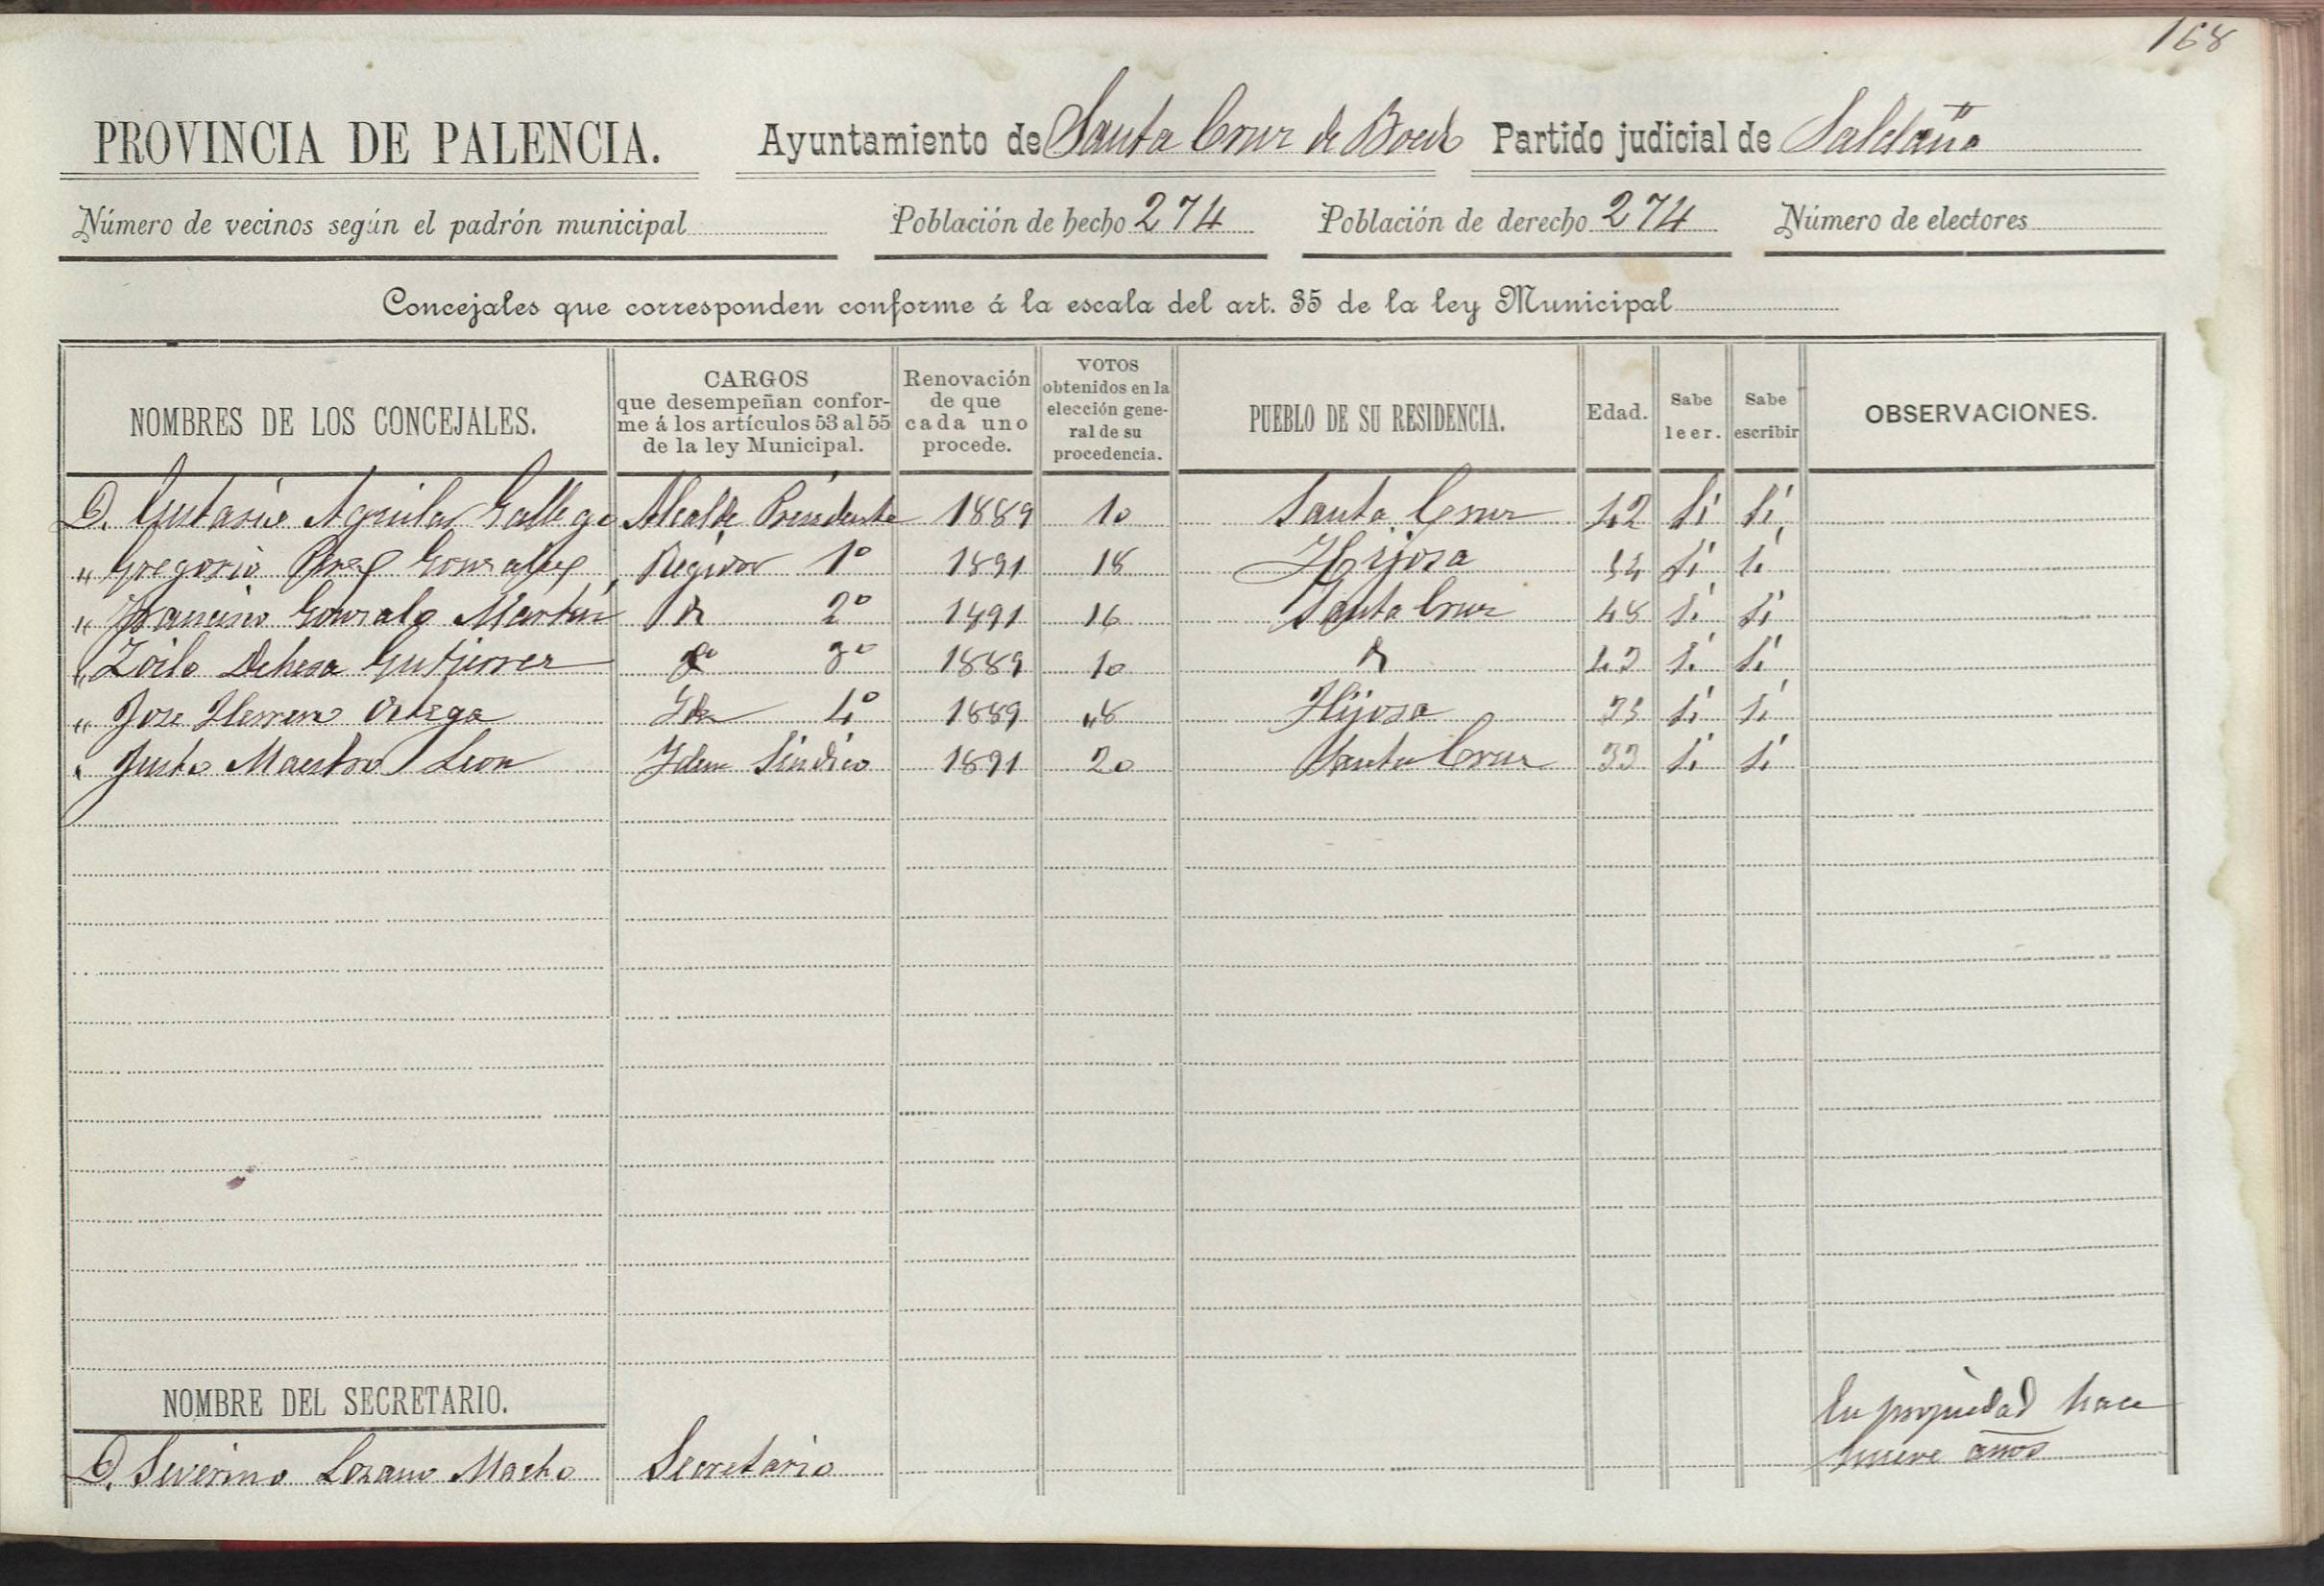 168
PROVINCIA DE PALENCIA. Ayuntamiento de Santa Cruz de Boedo Partido judicial de Saldaña
Número de vecinos según el padrón municipal Población de hecho 274 Población de derecho 274 Número de electores
Concejales que corresponden conforme á la escala del art. 35 de la ley Municipal
NOMBRES DE LOS CONCEJALES. CARGOS que desempeñan confor- me á los artículos 53 al 55 de la ley Municipal. Renovación de que cada uno procede. VOTOS obtenidos en la elección gene- ral de su procedencia. PUEBLO DE SU RESIDENCIA. Edad. Sabe leer. Sabe escribir OBSERVACIONES.
D. Eustasio Aguilar Gallego Alcalde Presidente 1889 10 Santa Cruz 42 Sí Sí
" Gregorio Perez Gonzalez Regidor 1º 1891 18 Hijosa 34 Sí Sí
" Francisco Gonzalo Martin 2º 1891 16 Santa Cruz 48 Sí Sí
" Zoilo Dehesa Gutierrez 3º 1889 10 43 Sí Sí
" Jose Herrero Ortega Id 4º 1889 "8 Hijosa Sí Sí
" Justo Maestro Leon Idem Sindico 1891 20 Santa Cruz 33 Sí Sí
NOMBRE DEL SECRETARIO.
D. Severino Lozano Macho Secretario En propiedad hace
nueve años